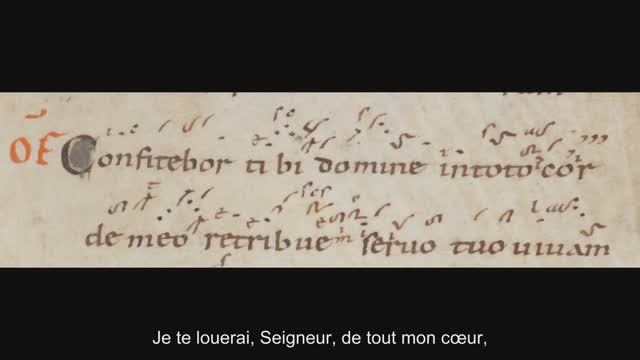 OF Confitebor tibi domine intoto cor
de meo retribue seruo tuo uiuam
Je te louerai, Seigneur, de tout mon cœur,